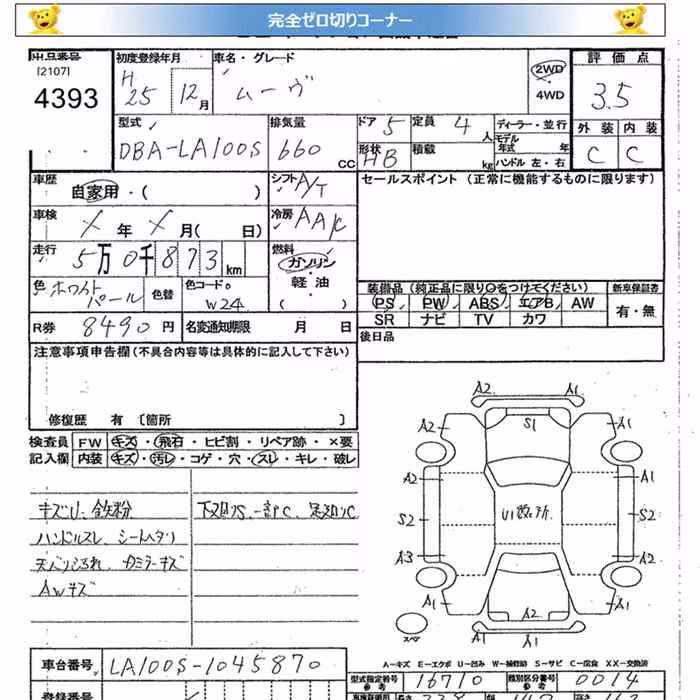 完全ゼロ切りコーナー
出品番号 初度登録年月 車名・グレード 評価点
[2107] H 25 12月 ムーヴ 2WD・4WD 3.5
4393
型式 排気量 ドア 5 定員 4人 ディーラー・並行 外装 内装
DBA-LA100S 660cc 形状 HB 積載 kg モデル年式 年 C C
ハンドル 左・右
車歴 自家用・( ) シフト A/T セールスポイント (正常に機能するものに限ります)
車検 X年X月( 日) 冷房 AA/C
走行 5万0千873km 燃料 ガソリン・軽油・( )
色 ホワイトパール 色替 色コードNo W24 装備品 (純正品に限り○をつけてください) 新車保証書
PS PW ABS エアB AW 有・無
R券 8490円 名変通知期限 月 日 SR ナビ TV カワ
後日品
注意事項申告欄(不具合内容等は具体的に記入して下さい)
修復歴 有 [箇所 ]
検査員 FW キズ・飛石・ヒビ割・リペア跡・×要
記入欄 内装 キズ・汚レ・コゲ・穴・スレ・キレ・破レ
キズU、鉄粉 下廻りS、一部C、足廻りC
ハンドルスレ、シートヘタリ
天バリシミ汚れ、
AWキズ
A2 A1
A2 S1 A2
A2 A1
S2 U1数ヶ所 S2
A3 A2
A1 A2 A1
A1
スペア
A-キズ E-エクボ U-凹み W-補修跡 S-サビ C-腐食 XX-交換済
車台番号 LA100S-1045870 型式指定番号 参考 16710 類別区分番号 参考 0014
登録番号